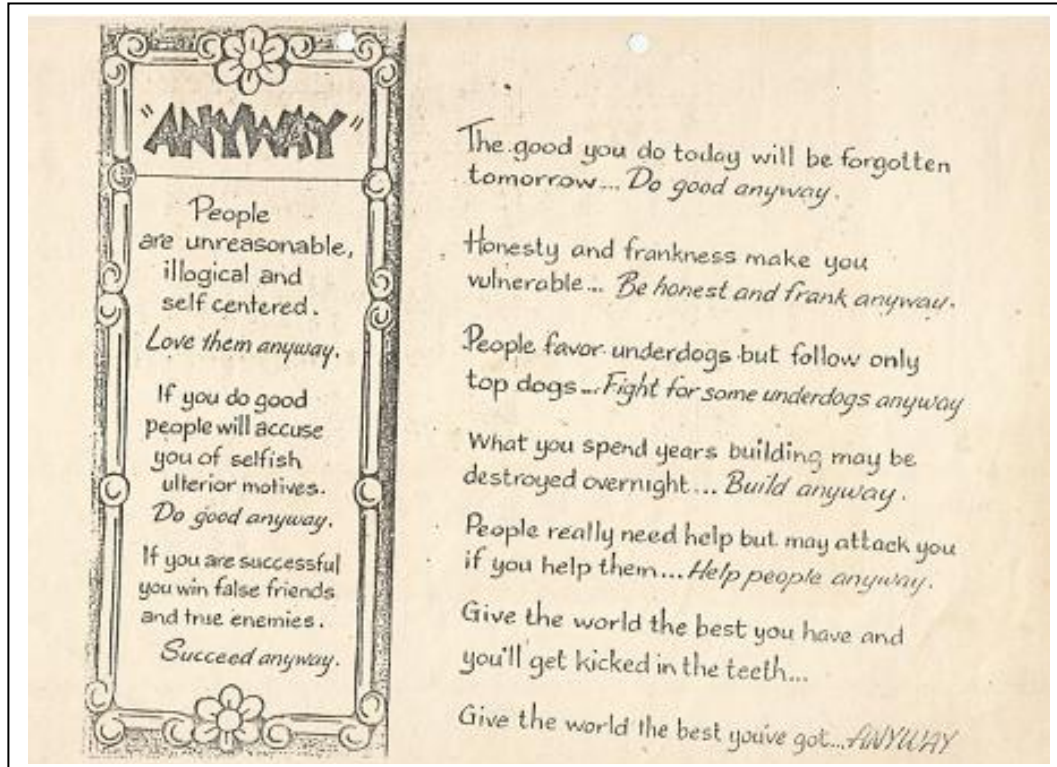 "ANYWAY"
People
are unreasonable,
illogical and
self centered.
Love them anyway.
If you do good
people will accuse
you of selfish
ulterior motives.
Do good anyway.
If you are successful
you win false friends
and true enemies.
Succeed anyway.
The good you do today will be forgotten
tomorrow... Do good anyway.
Honesty and frankness make you
vulnerable... Be honest and frank anyway.
People favor underdogs but follow only
top dogs... Fight for some underdogs anyway
What you spend years building may be
destroyed overnight... Build anyway.
People really need help but may attack you
if you help them... Help people anyway.
Give the world the best you have and
you'll get kicked in the teeth...
Give the world the best you've got... ANYWAY